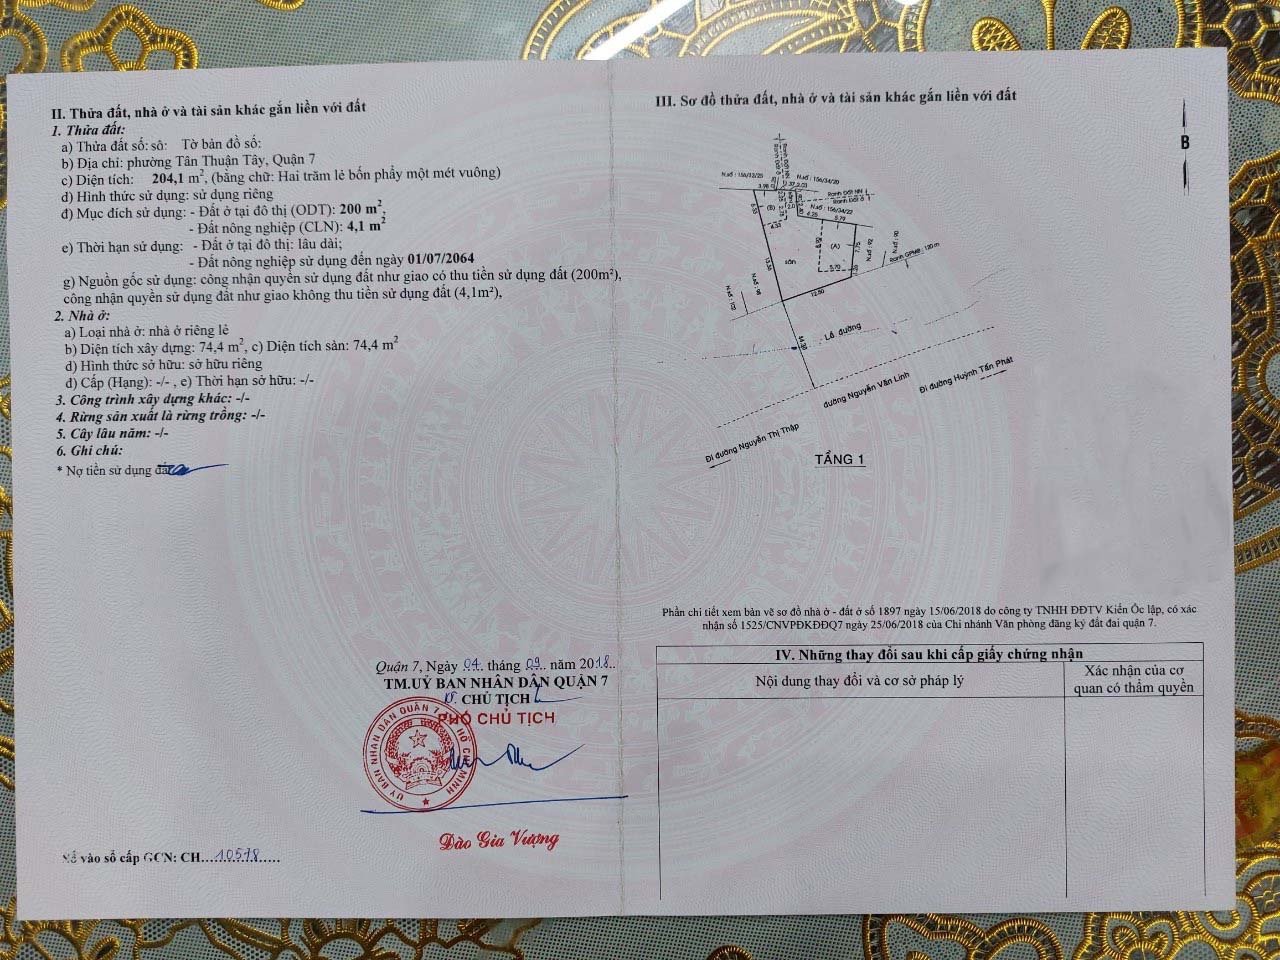 II. Thửa đất, nhà ở và tài sản khác gắn liền với đất
1. Thửa đất:
a) Thửa đất số: số: Tờ bản đồ số:
b) Địa chỉ: phường Tân Thuận Tây, Quận 7
c) Diện tích: 204,1 m², (bằng chữ: Hai trăm lẻ bốn phẩy một mét vuông)
d) Hình thức sử dụng: sử dụng riêng
đ) Mục đích sử dụng: - Đất ở tại đô thị (ODT): 200 m²,
- Đất nông nghiệp (CLN): 4,1 m²
e) Thời hạn sử dụng: - Đất ở tại đô thị: lâu dài;
- Đất nông nghiệp sử dụng đến ngày 01/07/2064
g) Nguồn gốc sử dụng: công nhận quyền sử dụng đất như giao có thu tiền sử dụng đất (200m²),
công nhận quyền sử dụng đất như giao không thu tiền sử dụng đất (4,1m²),
2. Nhà ở:
a) Loại nhà ở: nhà ở riêng lẻ
b) Diện tích xây dựng: 74,4 m², c) Diện tích sàn: 74,4 m²
d) Hình thức sở hữu: sở hữu riêng
đ) Cấp (Hạng): -/- , e) Thời hạn sở hữu: -/-
3. Công trình xây dựng khác: -/-
4. Rừng sản xuất là rừng trồng: -/-
5. Cây lâu năm: -/-
6. Ghi chú:
* Nợ tiền sử dụng đất
Quận 7, Ngày 04 tháng 09 năm 2018
TM.UỶ BAN NHÂN DÂN QUẬN 7
KT. CHỦ TỊCH
PHÓ CHỦ TỊCH
ỦY BAN NHÂN DÂN QUẬN 7 TP HỒ CHÍ MINH
Đào Gia Vượng
Số vào sổ cấp GCN: CH....10578......
III. Sơ đồ thửa đất, nhà ở và tài sản khác gắn liền với đất
B
Ranh Đất NN
Ranh Đất ở
N.số : 156/32/25
N.số : 156/34/20
3.98
2.03
Ranh Đất NN
Ranh Đất ở
N.số : 156/34/22
(B)
4.33
4.25
5.79
5.33
(A)
7.75
13.35
sân
5.73
Ranh GPMB : 120 m
12.50
Lề đường
14.30
đường Nguyễn Văn Linh
Đi đường Huỳnh Tấn Phát
Đi đường Nguyễn Thị Thập
TẦNG 1
Phần chi tiết xem bản vẽ sơ đồ nhà ở - đất ở số 1897 ngày 15/06/2018 do công ty TNHH ĐĐTV Kiến Ốc lập, có xác
nhận số 1525/CNVPĐKĐĐQ7 ngày 25/06/2018 của Chi nhánh Văn phòng đăng ký đất đai quận 7.
IV. Những thay đổi sau khi cấp giấy chứng nhận
Nội dung thay đổi và cơ sở pháp lý
Xác nhận của cơ
quan có thẩm quyền